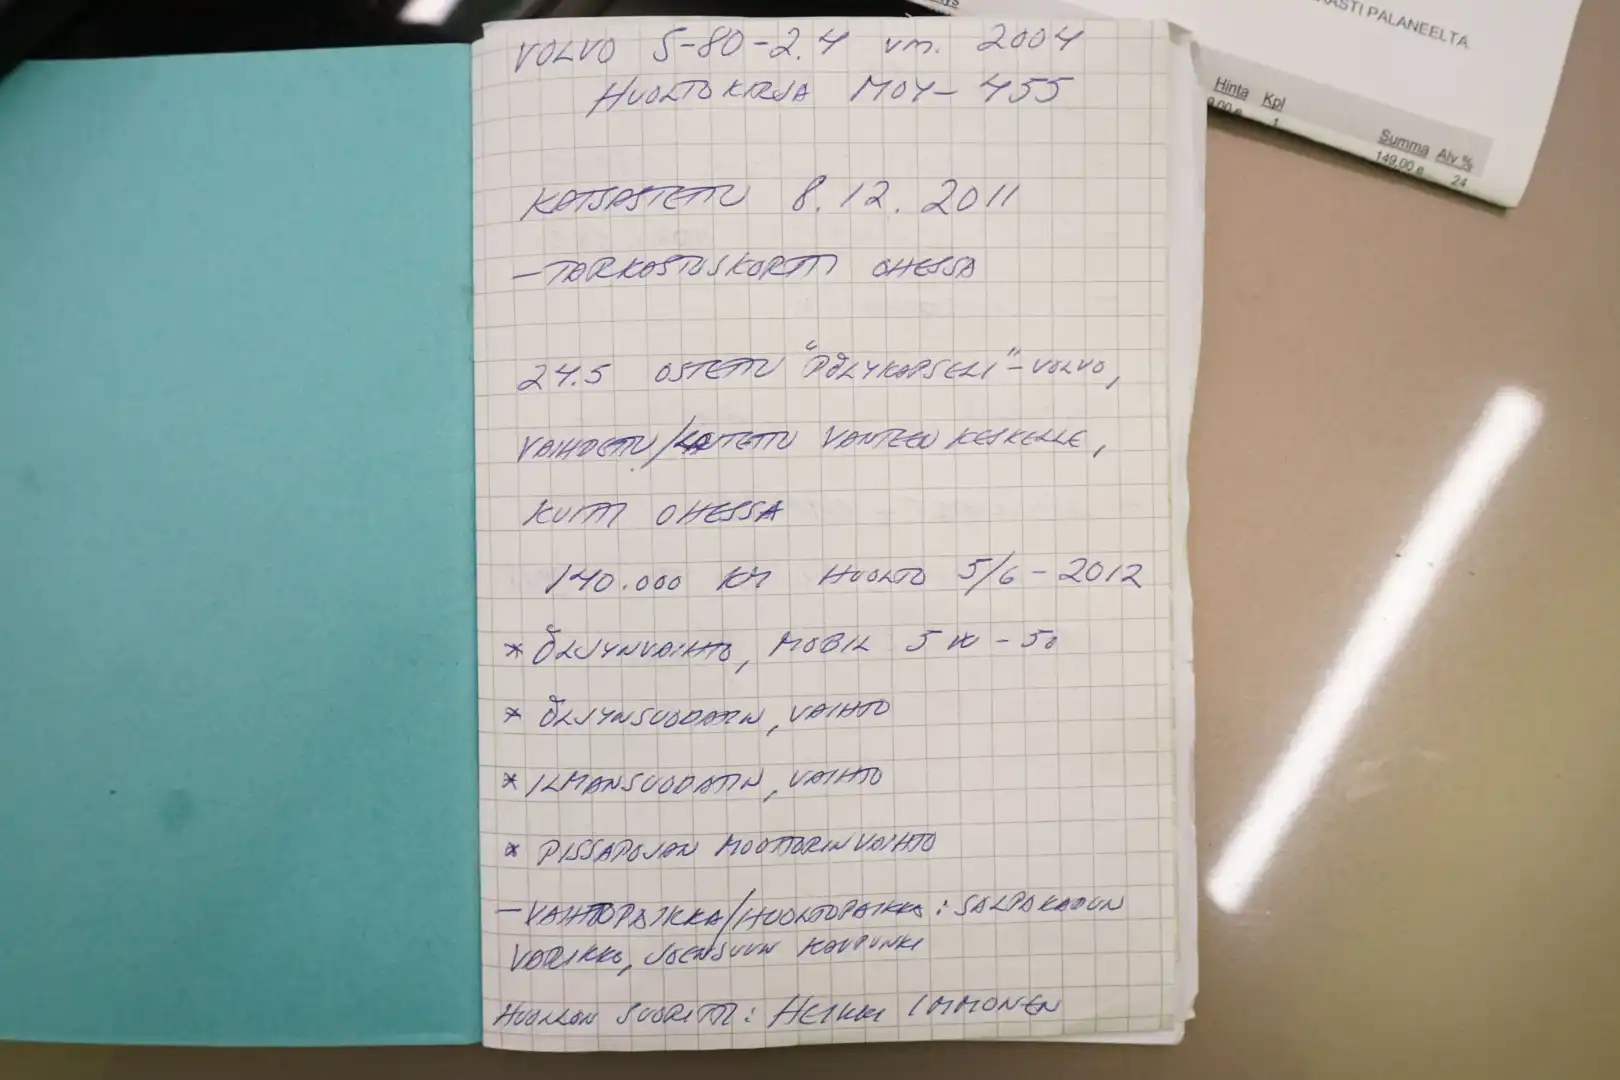 VOLVO S-80-2.4 vm. 2004
HUOLTOKIRJA MOY-455
KATSASTETTU 8.12.2011
-TARKASTUSKORTTI OHESSA
24.5 OSTETTU "PÖLYKAPSELI"-VOLVO,
VAIHDETTU/LAITETTU VANTEEN KESKELLE,
KUITTI OHESSA
140.000 KM HUOLTO 5/6-2012
* ÖLJYNVAIHTO, MOBIL 5W-50
* ÖLJYNSUODATIN, VAIHTO
* ILMANSUODATIN, VAIHTO
* PISSAPOJAN MOOTTORIN VAIHTO
-VAIHTOPAIKKA/HUOLTOPAIKKA: SALPAKADUN
VARIKKO, JOENSUUN KAUPUNKI
HUOLLON SUORITTI: HEIKKI IMMONEN
PALANEELTA
Hinta Kpl
1
Summa Alv %
149,00 e 24